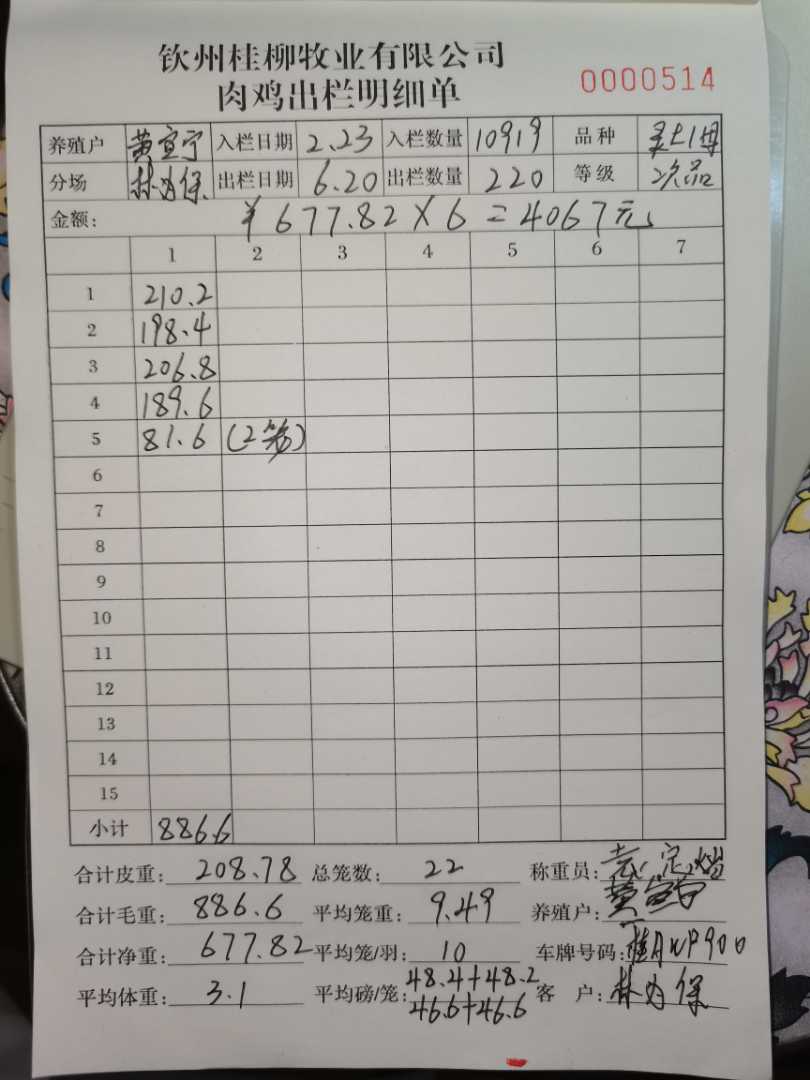 钦州桂柳牧业有限公司
肉鸡出栏明细单 0000514
养殖户 黄宣宁 入栏日期 2.23 入栏数量 10919 品种
分场 林为保 出栏日期 6.20 出栏数量 220 等级 次品
金额: ¥677.82×6=4067元
1 2 3 4 5 6 7
1 210.2
2 198.4
3 206.8
4 189.6
5 81.6 (2笼)
6
7
8
9
10
11
12
13
14
15
小计 886.6
合计皮重: 208.78 总笼数: 22 称重员:
合计毛重: 886.6 平均笼重: 9.49 养殖户: 黄宣宁
合计净重: 677.82 平均笼/羽: 10 车牌号码:
平均体重: 3.1 平均磅/笼: 48.4+48.2 客 户: 林为保
46.6+46.6